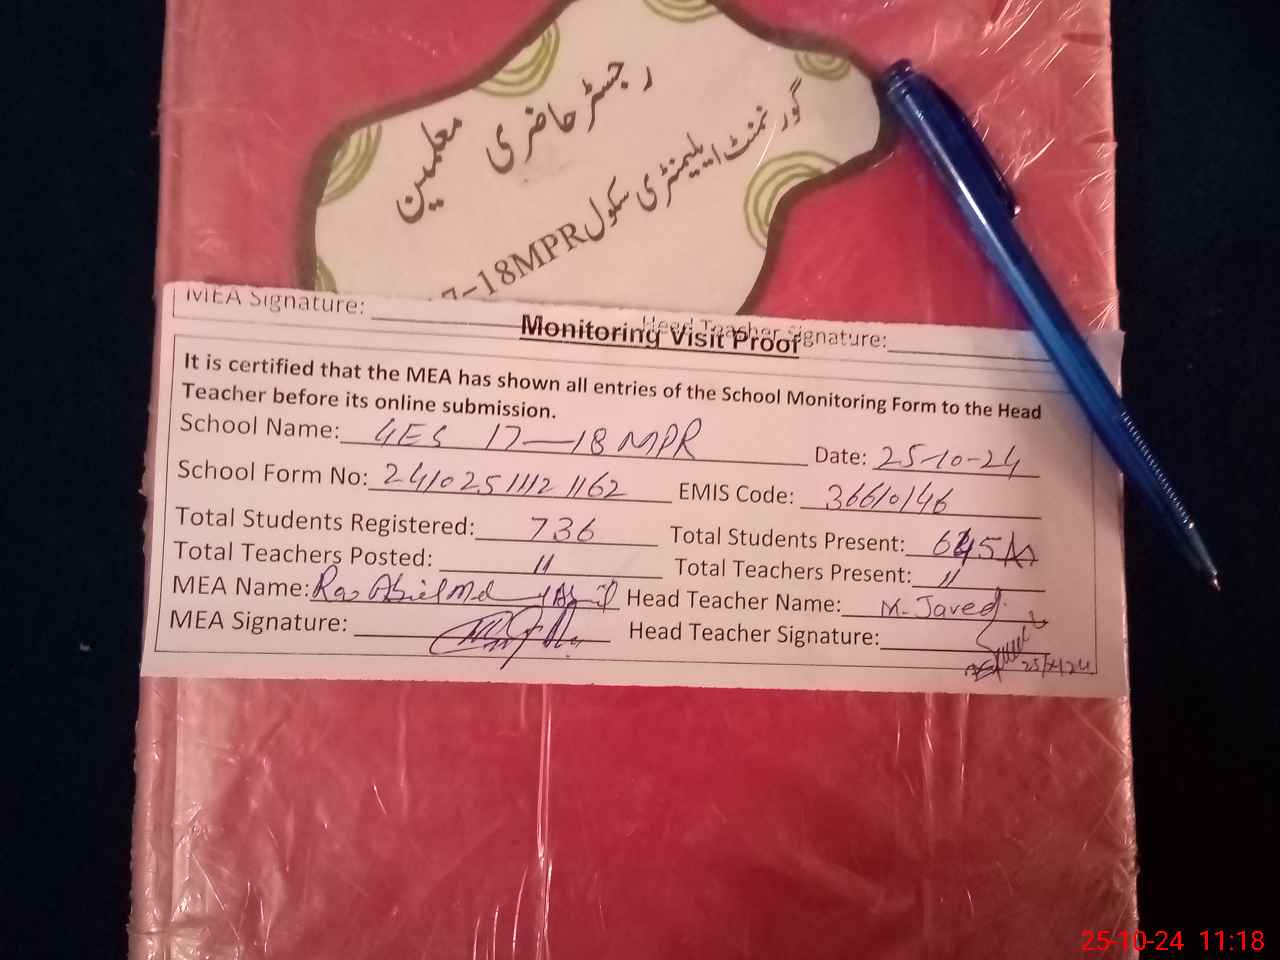 رجسٹر حاضری معلمین
گورنمنٹ ایلیمنٹری سکول 17-18MPR
MEA Signature: Head Teacher Signature:
Monitoring Visit Proof
It is certified that the MEA has shown all entries of the School Monitoring Form to the Head
Teacher before its online submission.
School Name: GES 17-18 MPR Date: 25-10-24
School Form No: 241025111121162 EMIS Code: 36610146
Total Students Registered: 736 Total Students Present: 645
Total Teachers Posted: 11 Total Teachers Present: 11
MEA Name: Head Teacher Name: M. Javed
MEA Signature: Head Teacher Signature:
25-10-24 11:18